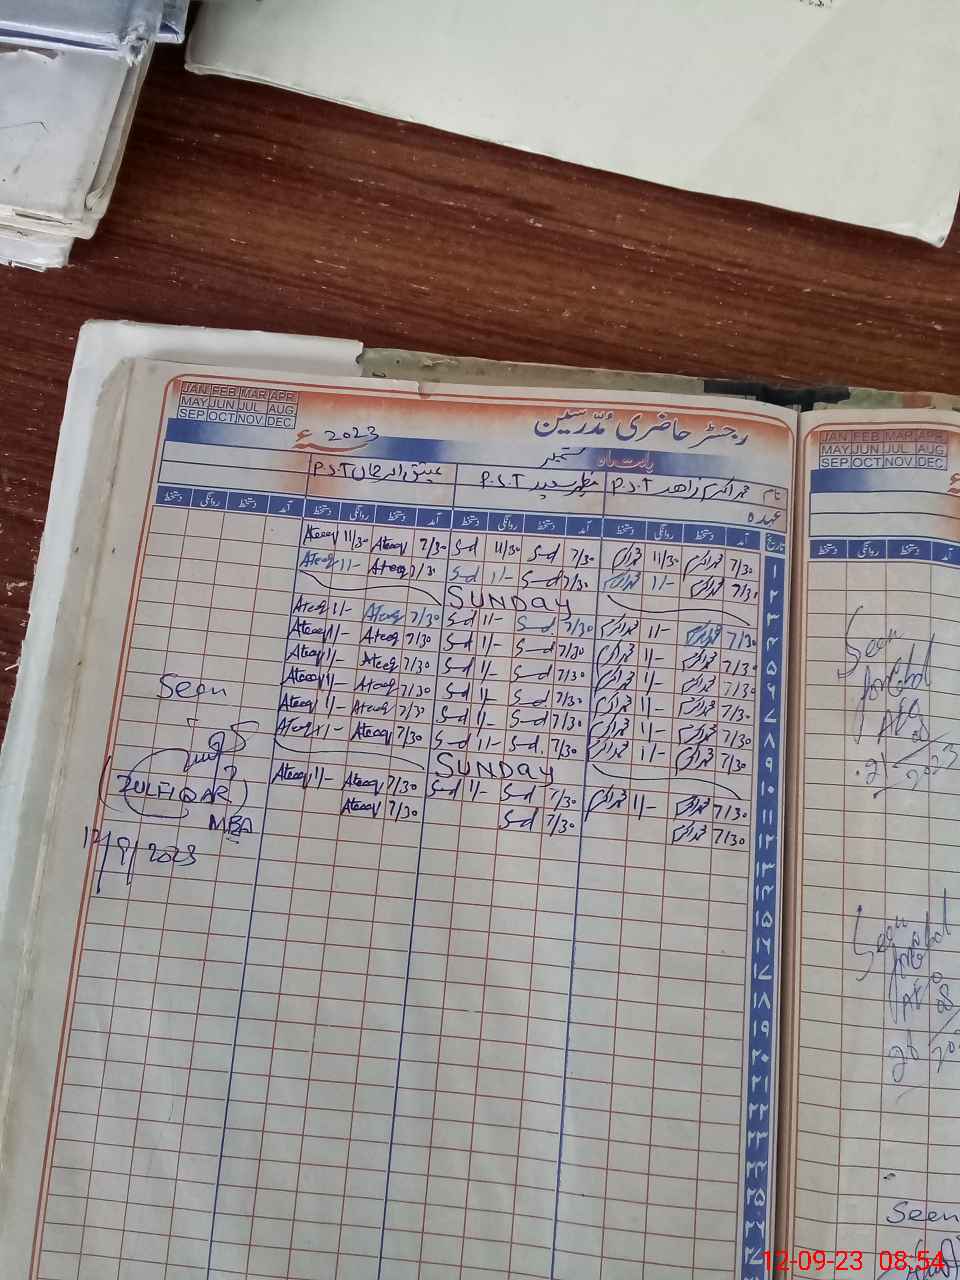 JAN FEB MAR APR
MAY JUN JUL AUG
SEP OCT NOV DEC
رجسٹر حاضری مُدرّسین
بابت ماہ ستمبر سنہ 2023ء
نام محمد اکرم زاھد P.S.T P.S.T عتیق الرحمان P.S.T
عہدہ
تاریخ آمد دستخط روانگی دستخط آمد دستخط روانگی دستخط آمد دستخط روانگی دستخط آمد دستخط روانگی دستخط
۱ 7/30 محمد اکرم 11/30 محمد اکرم 7/30 Sd 11/30 Sd 7/30 Ateeq 11/30 Ateeq
۲ 7/30 محمد اکرم 11/- محمد اکرم 7/30 Sd 11/- Sd 7/30 Ateeq 11/- Ateeq
۳ SUNDAY
7/30 محمد اکرم 11/- محمد اکرم 7/30 Sd 11/- Sd 7/30 Ateeq 11/- Ateeq
۵ 7/30 محمد اکرم 11/- محمد اکرم 7/30 Sd 11/- Sd 7/30 Ateeq 11/- Ateeq
۶ 7/30 محمد اکرم 11/- محمد اکرم 7/30 Sd 11/- Sd 7/30 Ateeq 11/- Ateeq
۷ 7/30 محمد اکرم 11/- محمد اکرم 7/30 Sd 11/- Sd 7/30 Ateeq 11/- Ateeq
۸ 7/30 محمد اکرم 11/- محمد اکرم 7/30 Sd 11/- Sd 7/30 Ateeq 11/- Ateeq
۹ 7/30 محمد اکرم 11/- محمد اکرم 7/30 Sd 11/- Sd 7/30 Ateeq 11/- Ateeq
۱۰ SUNDAY
۱۱ 7/30 محمد اکرم 11/- محمد اکرم 7/30 Sd 11/- Sd 7/30 Ateeq 11/- Ateeq
۱۲ 7/30 محمد اکرم 7/30 Sd 7/30 Ateeq
۱۳
۱۴
۱۵
۱۶
۱۷
۱۸
۱۹
۲۰
۲۱
۲۲
۲۳
۲۴
۲۵
۲۶
Seen
ZULFIQAR
MEA
12/9/2023
JAN FEB MAR APR
MAY JUN JUL AUG
SEP OCT NOV DEC
آمد دستخط روانگی دستخط
Seen
AEO
2023
Seen
AEO
Seen
12-09-23 08:54